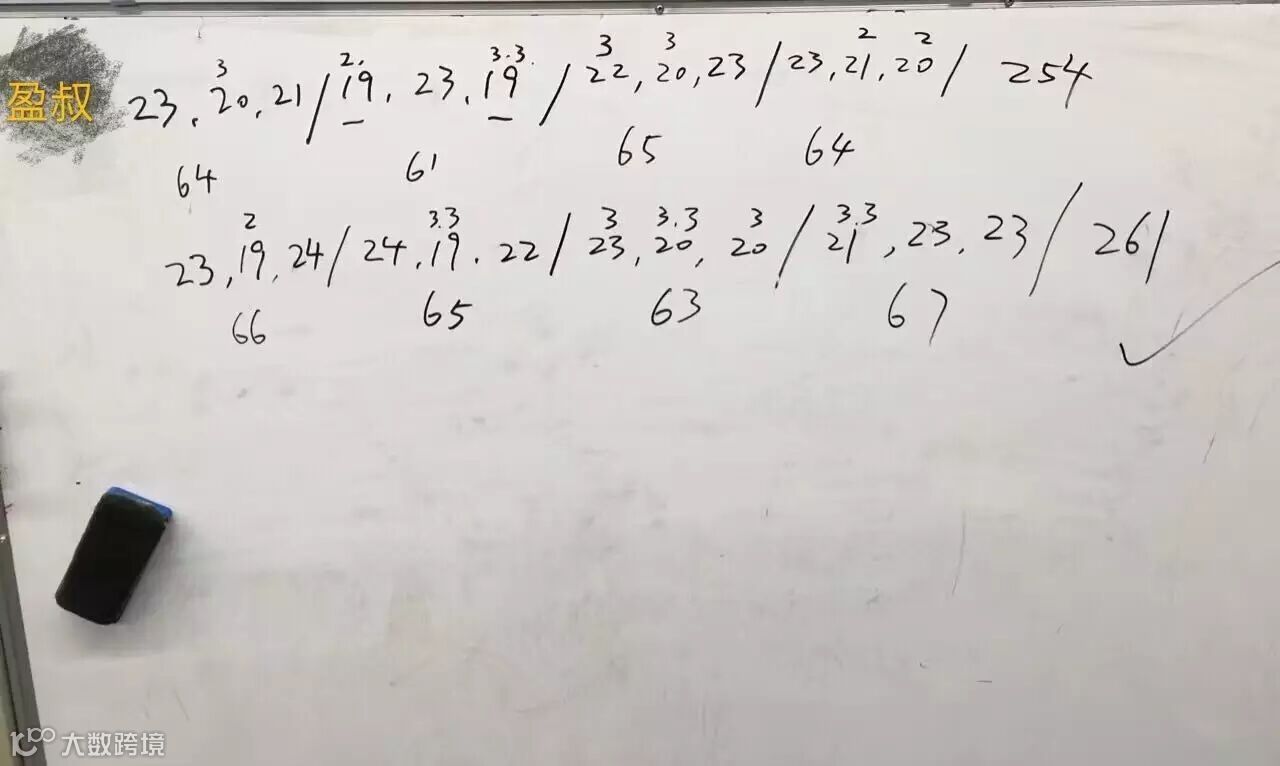 盈叔
3 2. 3.3. 3 3 2 2
23, 20, 21 / 19, 23, 19 / 22, 20, 23 / 23, 21, 20 / 254
64 61 65 64
2 3.3 3 3.3 3 3.3
23, 19, 24 / 24, 19, 22 / 23, 20, 20 / 21, 23, 23 / 261
66 65 63 67
大数跨境